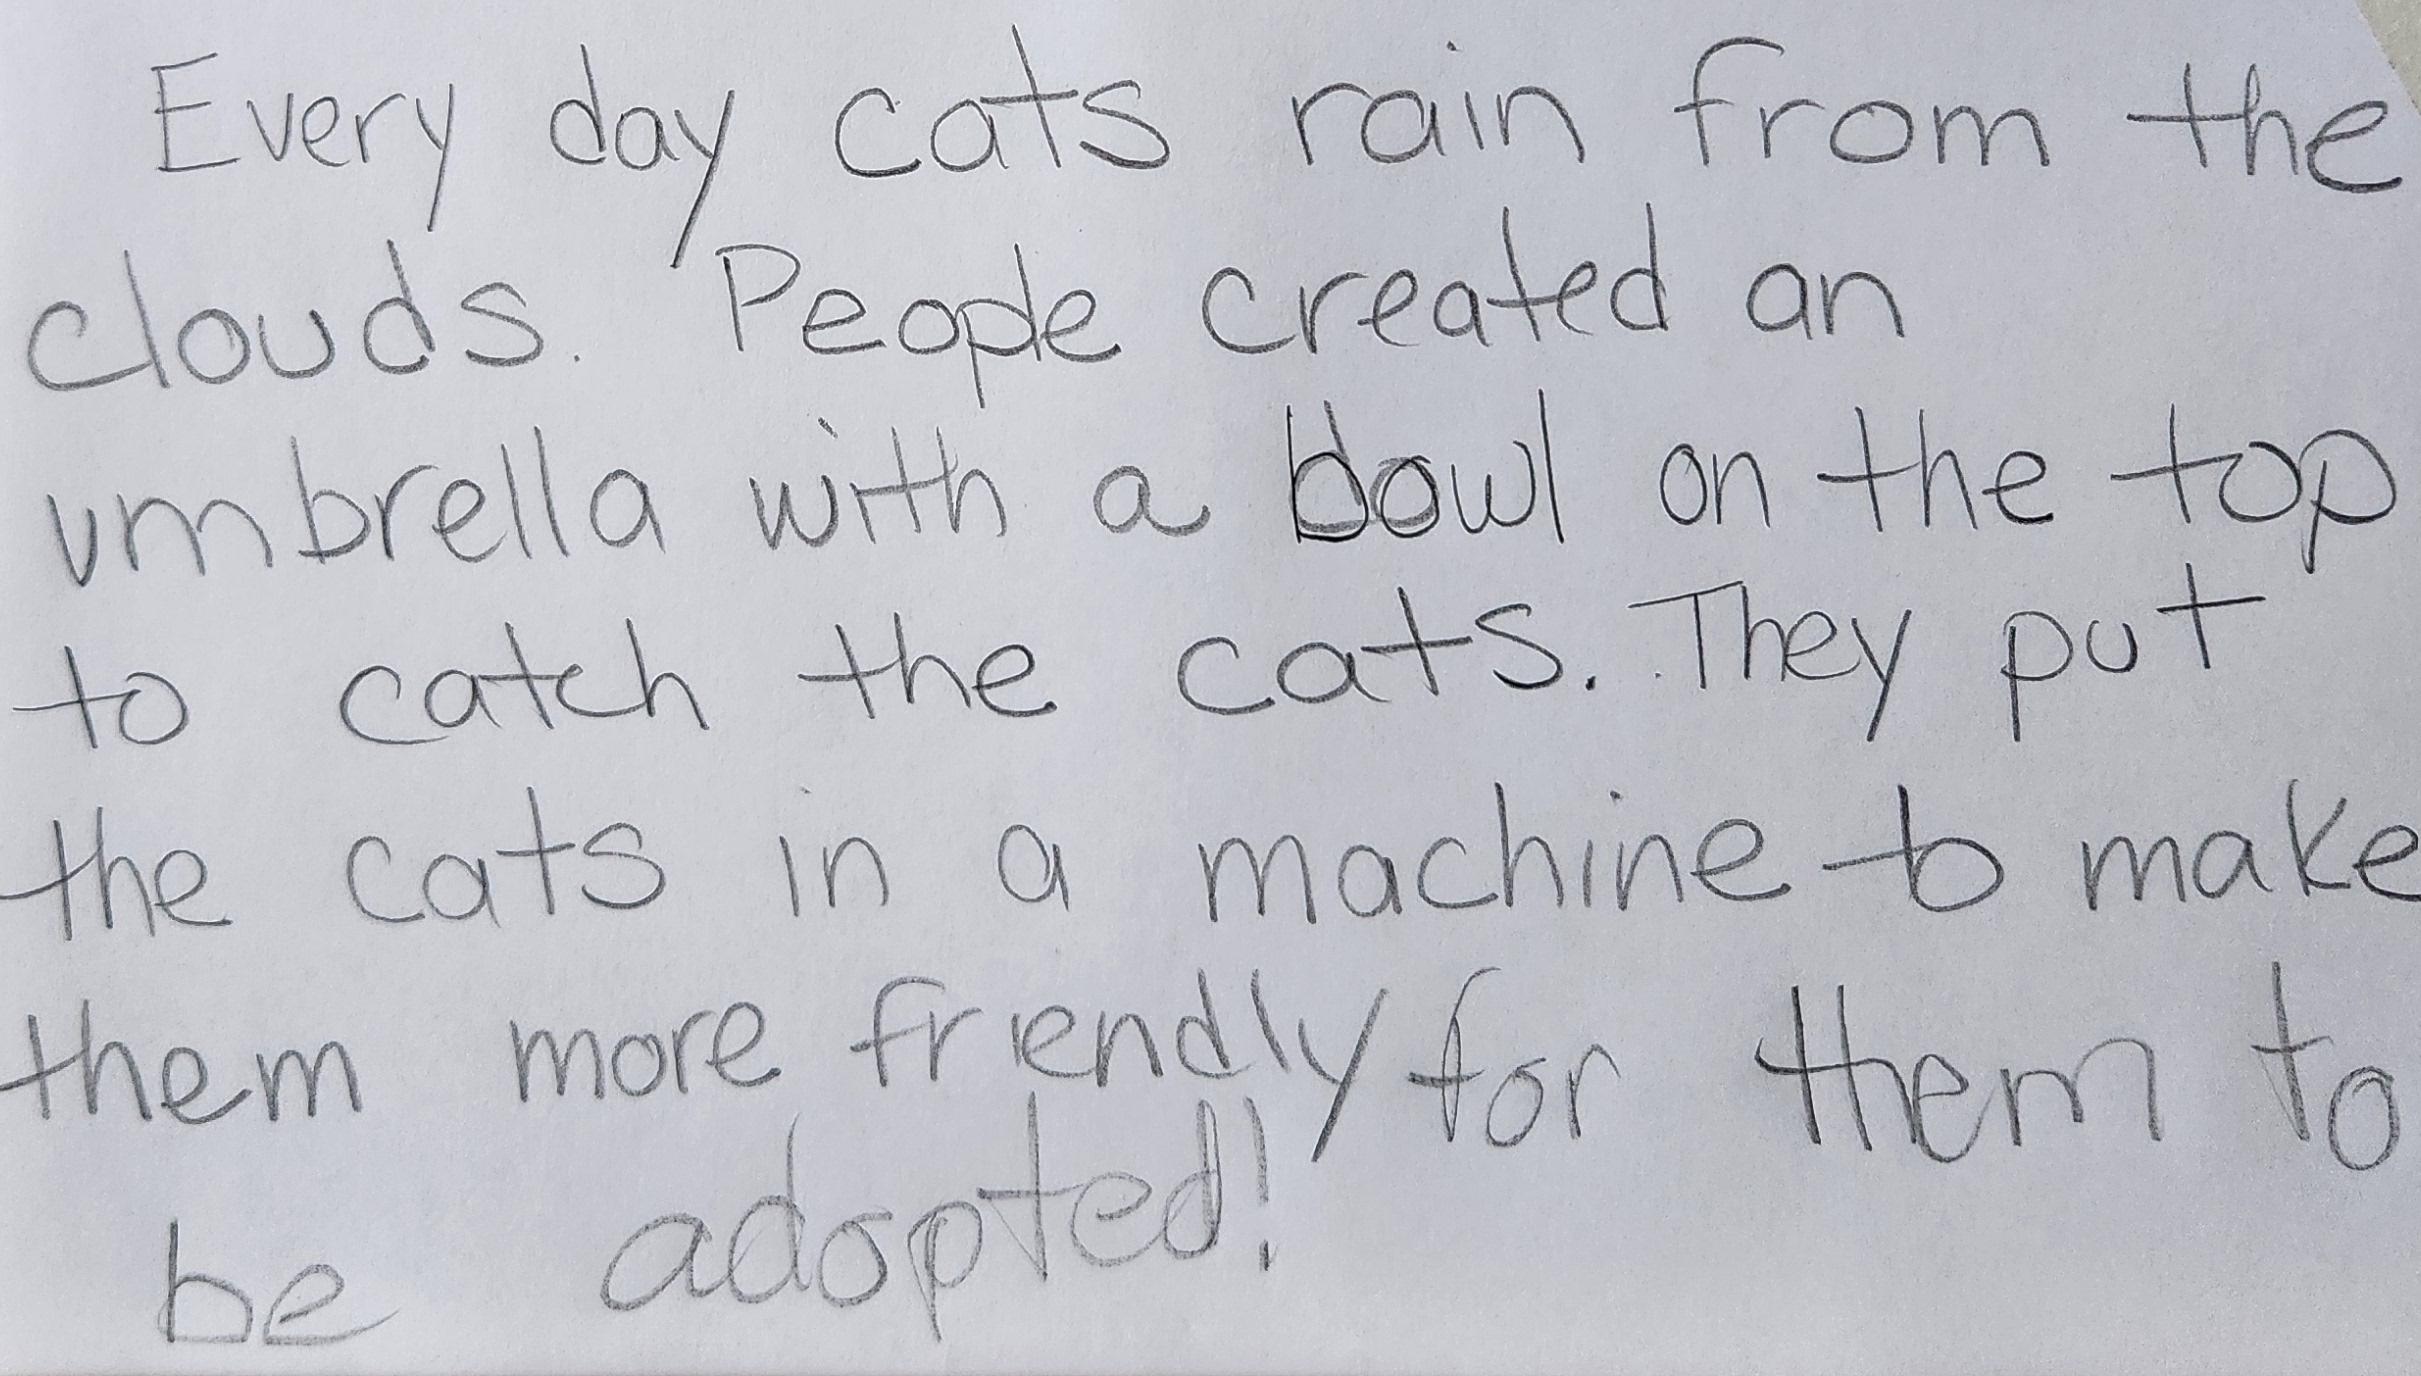 Every day cats rain from the
clouds. People created an
umbrella with a bowl on the top
to catch the cats. They put
the cats in a machine to make
them more friendly for them to
be adopted!